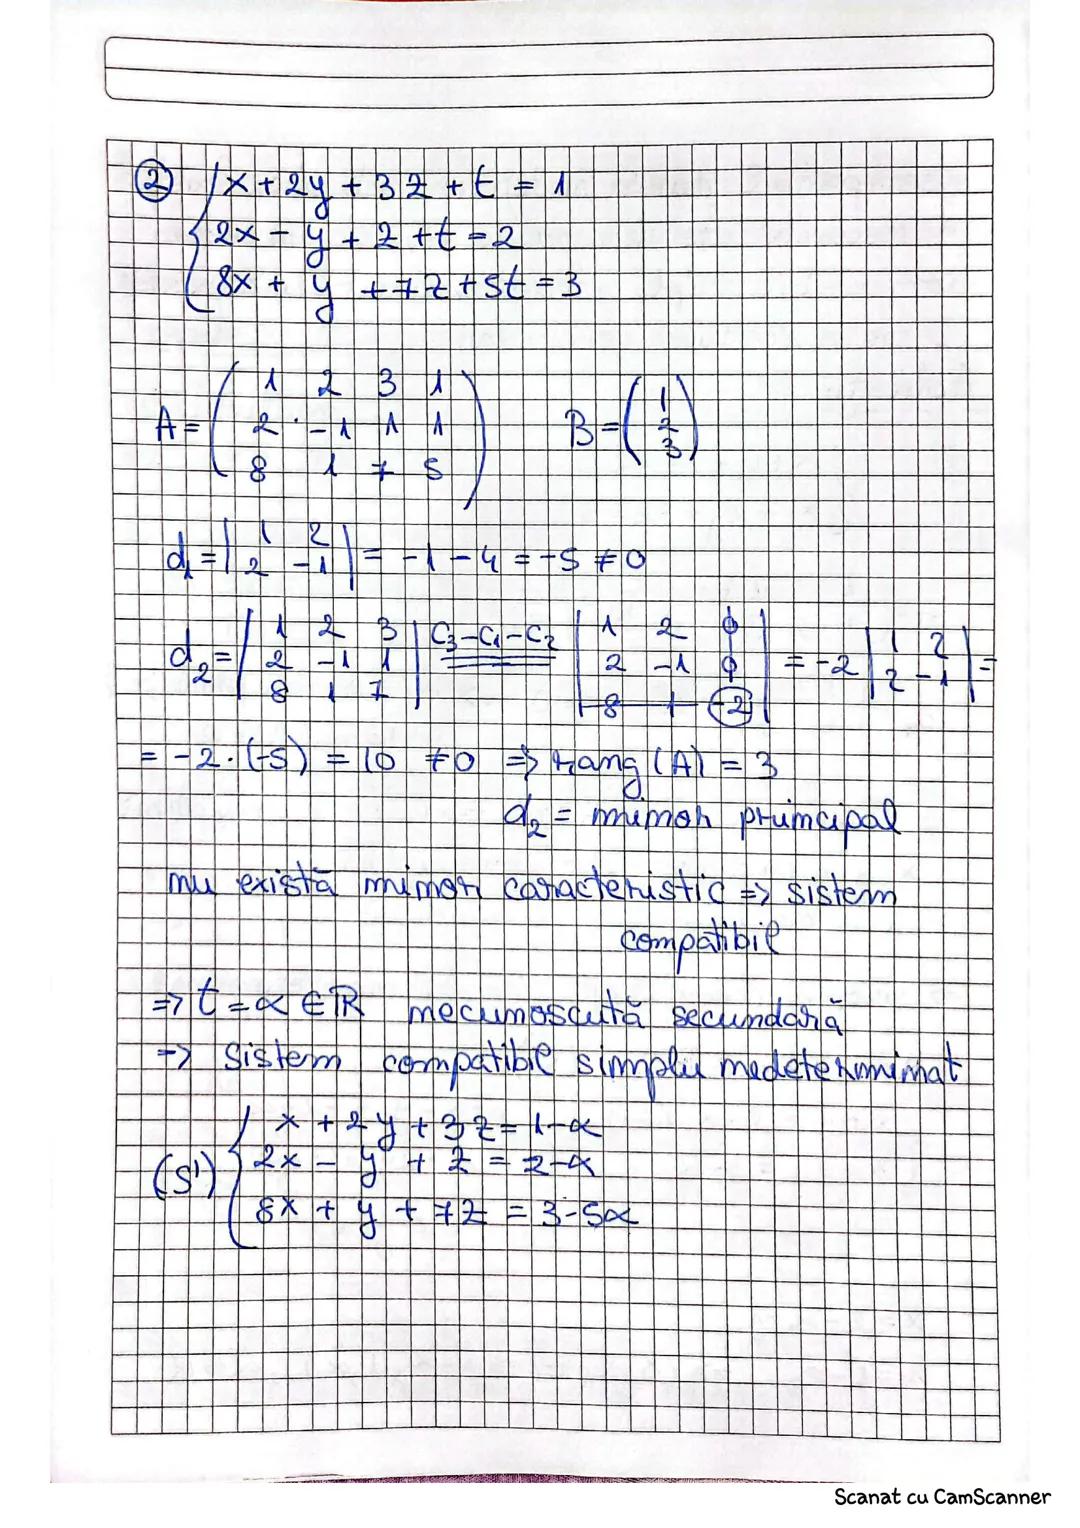 ② { x + 2y + 3z + t = 1
2x - y + z + t = 2
8x + y + 7z + 5t = 3
A = ( 1 2 3 1
2 -1 1 1
8 1 7 5 )
B = ( 1
2
3 )
d₁ = | 1 2
2 -1 | = -1 - 4 = -5 ≠ 0
d₂ = | 1 2 3
2 -1 1
8 1 7 | C₃-C₁-C₂ | 1 2 0
2 -1 0
8 1 -2 | = -2 | 1 2
2 -1 | =
= -2 · (-5) = 10 ≠ 0 => rang (A) = 3
d₂ = minor principal
nu există minor caracteristic => sistem
compatibil
=> t = α ∈ ℝ necunoscută secundară
=> sistem compatibil simplu nedeterminat
(S') { x + 2y + 3z = 1-α
2x - y + z = 2-α
8x + y + 7z = 3-5α
Scanat cu CamScanner